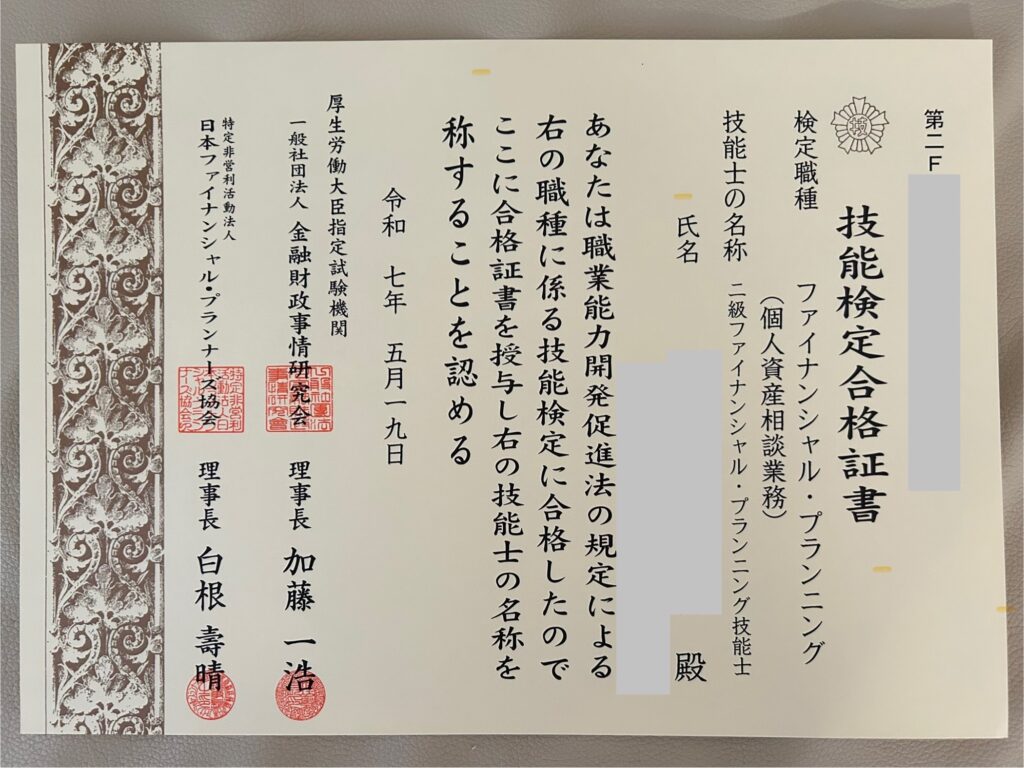 第二F
技能検定合格証書
検定職種 ファイナンシャル・プランニング
(個人資産相談業務)
技能士の名称 二級ファイナンシャル・プランニング技能士
氏名 殿
あなたは職業能力開発促進法の規定による
右の職種に係る技能検定に合格したので
ここに合格証書を授与し右の技能士の名称を
称することを認める
令和 七年 五月一九日
厚生労働大臣指定試験機関
一般社団法人 金融財政事情研究会 理事長 加藤 一浩
特定非営利活動法人
日本ファイナンシャル・プランナーズ協会 理事長 白根 壽晴